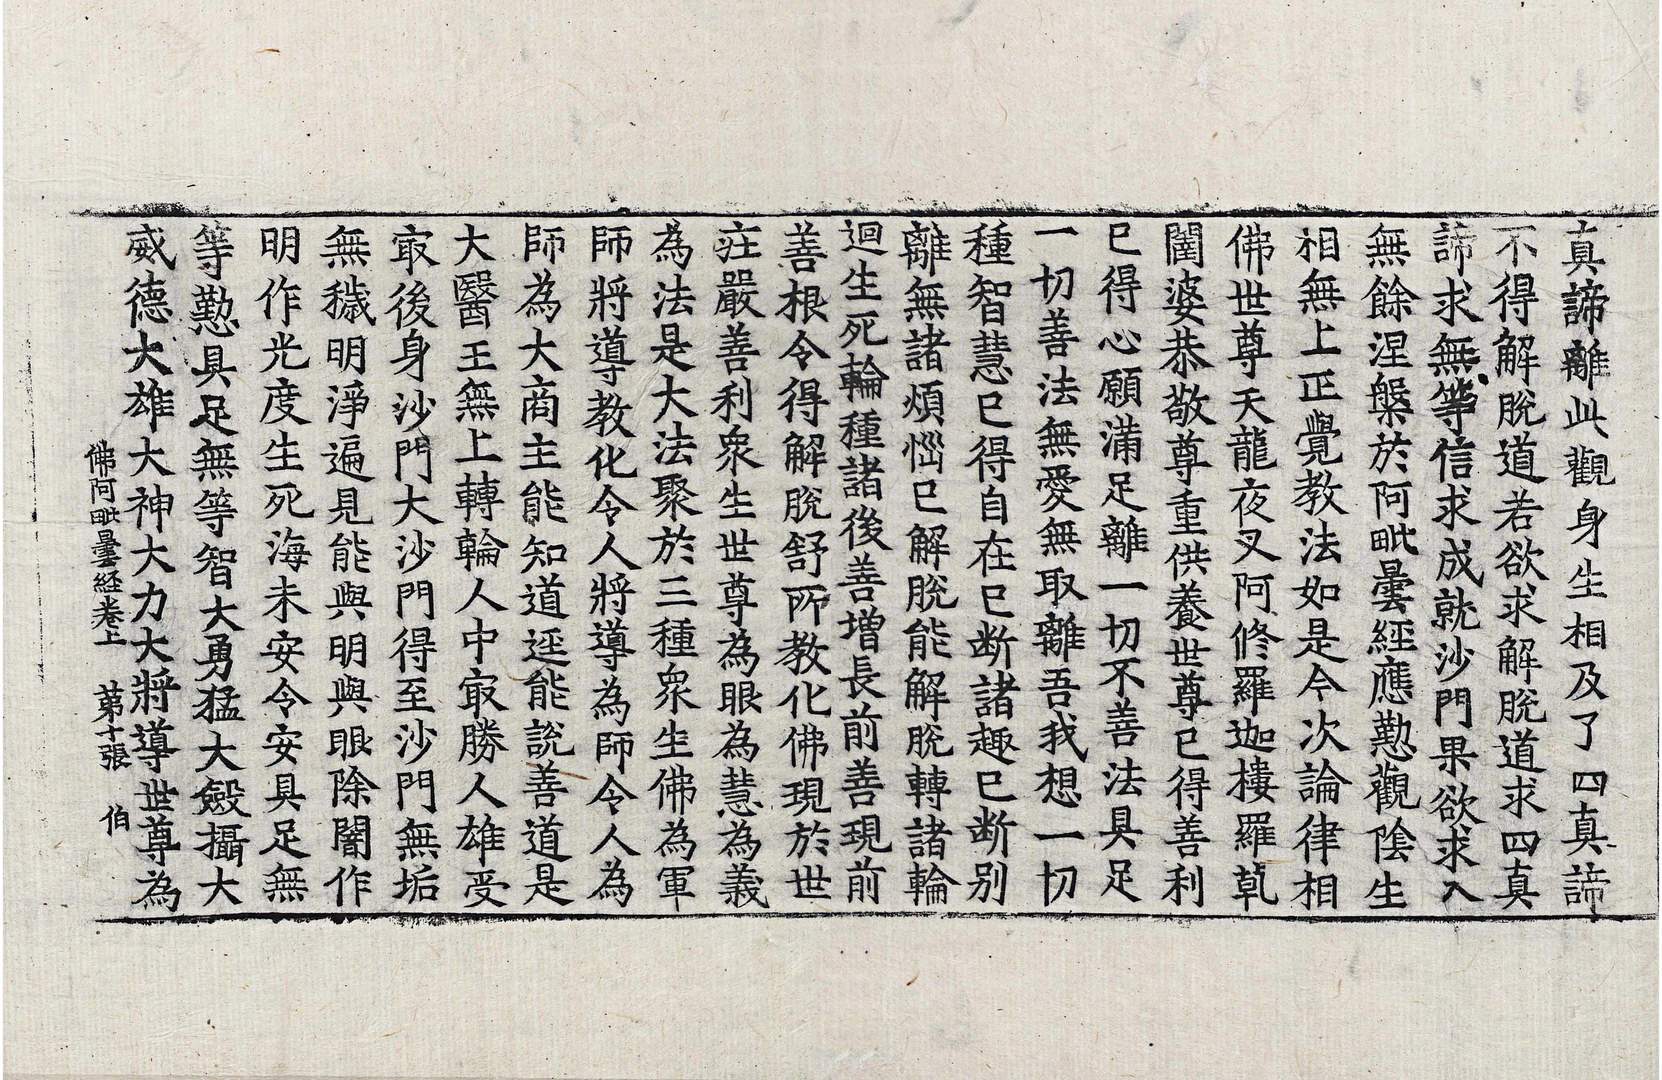 真諦離此觀身生相及了四真諦
不得解脫道若欲求解脫道求四真
諦求無等信求成就沙門果欲求入
無餘涅槃於阿毗曇經應懃觀陰生
相無上正覺教法如是今次論律相
佛世尊天龍夜叉阿修羅迦樓羅乹
闥婆恭敬尊重供養世尊已得善利
已得心願滿足離一切不善法具足
一切善法無愛無取離吾我想一切
種智慧已得自在已断諸趣已断别
離無諸煩惱已解脫能解脫轉諸輪
迴生死輪種諸後善增長前善現前
善根令得解脫舒所教化佛現於世
莊嚴善利衆生世尊為眼為慧為義
為法是大法聚於三種衆生佛為軍
師將導教化令人將導為師令人為
師為大商主能知道逕能説善道是
大醫王無上轉輪人中㝡勝人雄受
㝡後身沙門大沙門得至沙門無垢
無穢明淨遍見能與明與眼除闇作
明作光度生死海未安令安具足無
等懃具足無等智大勇猛大㲉攝大
威德大雄大神大力大將導世尊為
佛阿毗曇経卷上　第十張　伯